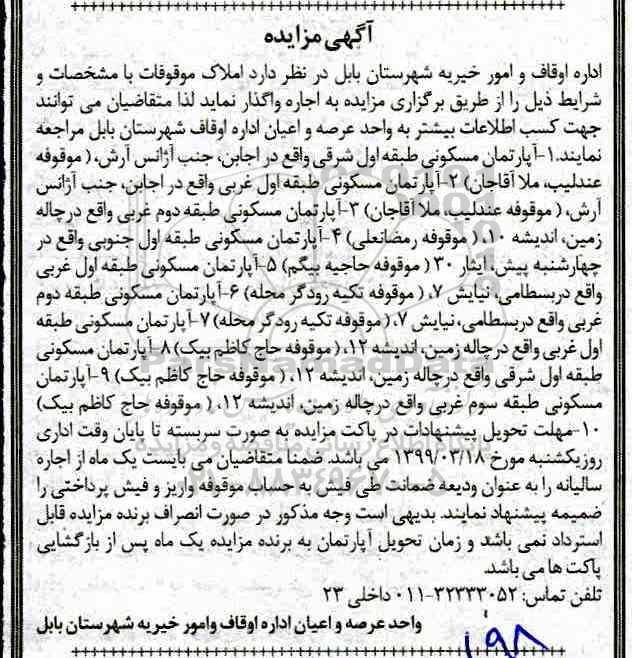 آگهی مزایده
اداره اوقاف و امور خیریه شهرستان بابل در نظر دارد املاک موقوفات با مشخصات و
شرایط ذیل را از طریق برگزاری مزایده به اجاره واگذار نماید لذا متقاضیان می توانند
جهت کسب اطلاعات بیشتر به واحد عرصه و اعیان اداره اوقاف شهرستان بابل مراجعه
نمایند.۱-آپارتمان مسکونی طبقه اول شرقی واقع در اجابن، جنب آژانس آرش، (موقوفه
عندلیب، ملا آقاجان) ۲-آپارتمان مسکونی طبقه اول غربی واقع در اجابن، جنب آژانس
آرش، (موقوفه عندلیب، ملا آقاجان) ۳-آپارتمان مسکونی طبقه دوم غربی واقع درچاله
زمین، اندیشه ۱۰، (موقوفه رمضانعلی) ۴-آپارتمان مسکونی طبقه اول جنوبی واقع در
چهارشنبه پیش، ایثار ۳۰ (موقوفه حاجیه بیگم) ۵-آپارتمان مسکونی طبقه اول غربی
واقع دربسطامی، نیایش ۷، (موقوفه تکیه رودگر محله) ۶-آپارتمان مسکونی طبقه دوم
غربی واقع دربسطامی، نیایش ۷، (موقوفه تکیه رودگر محله) ۷-آپارتمان مسکونی طبقه
اول غربی واقع درچاله زمین، اندیشه ۱۲، (موقوفه حاج کاظم بیک) ۸-آپارتمان مسکونی
طبقه اول شرقی واقع درچاله زمین، اندیشه ۱۲، (موقوفه حاج کاظم بیک) ۹-آپارتمان
مسکونی طبقه سوم غربی واقع درچاله زمین، اندیشه ۱۲، (موقوفه حاج کاظم بیک)
۱۰-مهلت تحویل پیشنهادات در پاکت مزایده به صورت سربسته تا پایان وقت اداری
روزیکشنبه مورخ ۱۳۹۹/۰۳/۱۸ می باشد. ضمنا متقاضیان می بایست یک ماه از اجاره
سالیانه را به عنوان ودیعه ضمانت طی فیش به حساب موقوفه واریز و فیش پرداختی را
ضمیمه پیشنهاد نمایند. بدیهی است وجه مذکور در صورت انصراف برنده مزایده قابل
استرداد نمی باشد و زمان تحویل آپارتمان به برنده مزایده یک ماه پس از بازگشایی
پاکت ها می باشد.
تلفن تماس: ۳۲۳۳۳۰۵۲-۰۱۱ داخلی ۲۳
واحد عرصه و اعیان اداره اوقاف وامور خیریه شهرستان بابل
۱۹۸
ParsNamadData